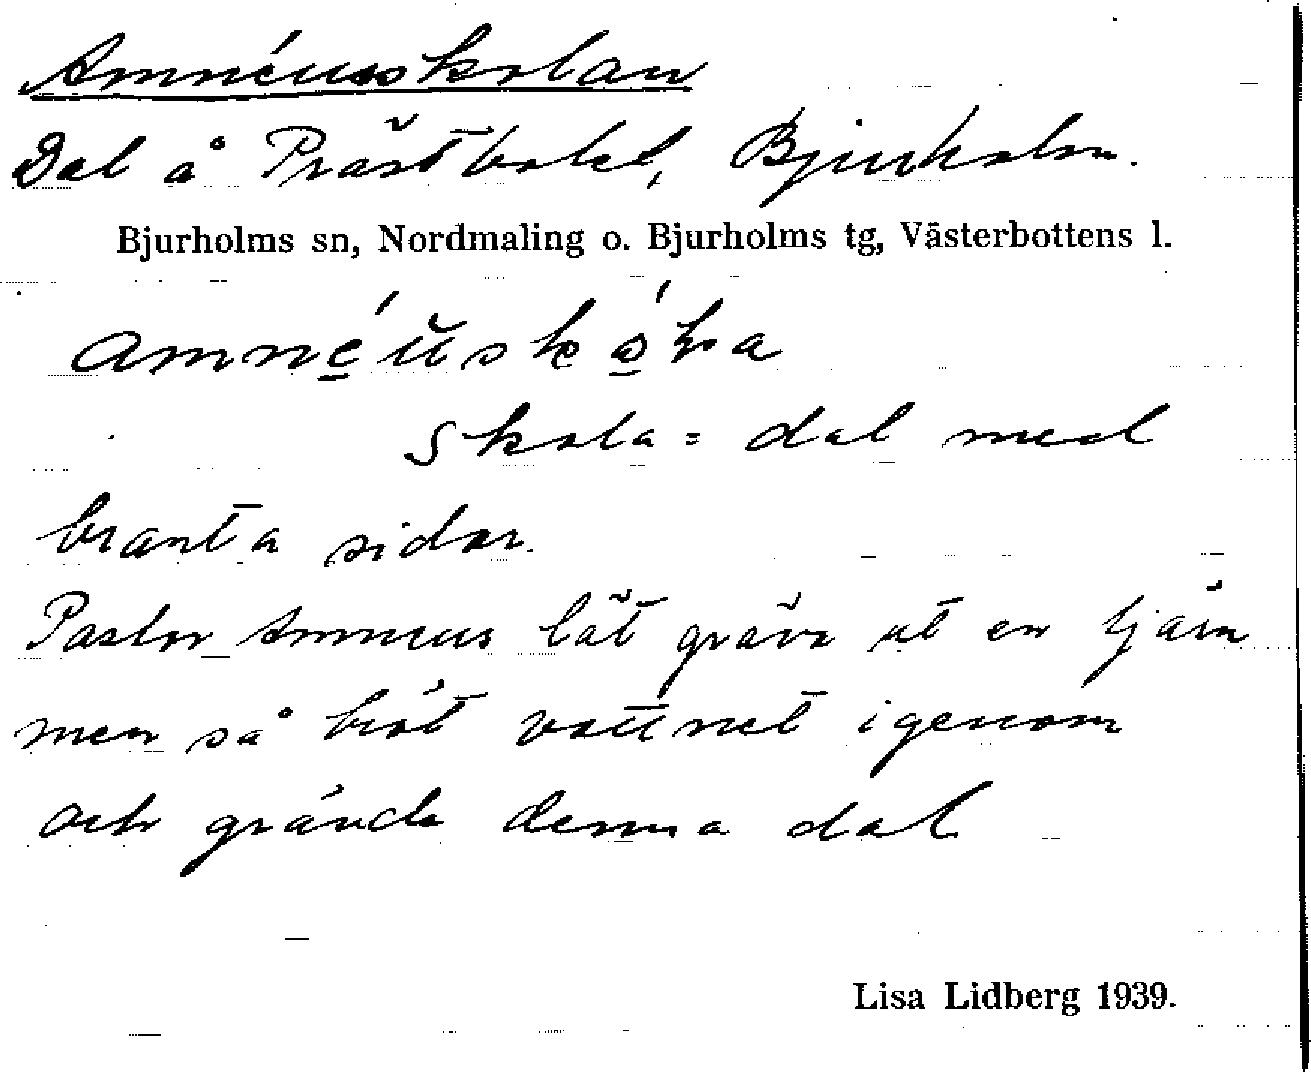 Amnéusskolan
Dal å Prästbolet, Bjurholm.
Bjurholms sn, Nordmaling o. Bjurholms tg, Västerbottens l.
skola = dal med
branta sidor.
Pastor Amneus lät gräva ut en tjärn
men så bröt vattnet igenom
och grävde denna dal
Lisa Lidberg 1939.